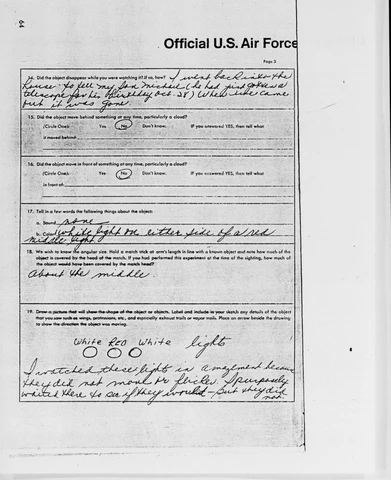 64
Official U.S. Air Force
Page 3
14. Did the object disappear while you were watching it? If so, how? I went back into the
house to tell my son Michael (he had just gotten a
telescope for his birthday Oct. 28) When we came
out it was gone.
15. Did the object move behind something at any time, particularly a cloud?
(Circle One): Yes No Don't know. If you answered YES, then tell what
it moved behind:
16. Did the object move in front of something at any time, particularly a cloud?
(Circle One): Yes No Don't know. If you answered YES, then tell what
in front of:
17. Tell in a few words the following things about the object:
a. Sound none
b. Color white light on either side of a red
middle light
18. We wish to know the angular size. Hold a match stick at arm's length in line with a known object and note how much of the
object is covered by the head of the match. If you had performed this experiment at the time of the sighting, how much of
the object would have been covered by the match head?
About the middle.
19. Draw a picture that will show the shape of the object or objects. Label and include in your sketch any details of the object
that you saw such as wings, protrusions, etc., and especially exhaust trails or vapor trails. Place an arrow beside the drawing
to show the direction the object was moving.
White Red White lights
I watched these lights in amazement because
they did not move or flicker. I purposely
waited there to see if they would - but they did
not.